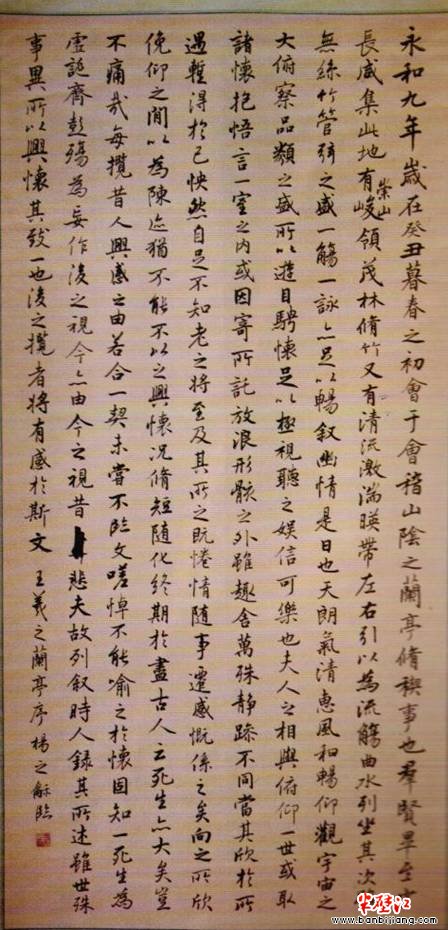 永和九年歲在癸丑暮春之初會于會稽山陰之蘭亭脩禊事也羣賢畢至少
長咸集此地有崇山峻領茂林脩竹又有清流激湍暎帶左右引以為流觴曲水列坐其次
無絲竹管弦之盛一觴一詠亦足以暢叙幽情是日也天朗氣清惠風和暢仰觀宇宙之
大俯察品類之盛所以遊目騁懷足以極視聽之娛信可樂也夫人之相與俯仰一世或取
諸懷抱悟言一室之內或因寄所託放浪形骸之外雖趣舍萬殊静躁不同當其欣於所
遇蹔得於己怏然自足不知老之將至及其所之既惓情隨事遷感慨係之矣向之所欣
俛仰之閒以為陳迹猶不能不以之興懷況脩短隨化終期於盡古人云死生亦大矣豈
不痛哉每攬昔人興感之由若合一契未嘗不臨文嗟悼不能喻之於懷固知一死生為
虛誕齊彭殤為妄作後之視今亦由今之視昔悲夫故列叙時人録其所述雖世殊
事異所以興懷其致一也後之攬者將有感於斯文 王羲之蘭亭序楊之龢臨
半壁江
www.banbijiang.com